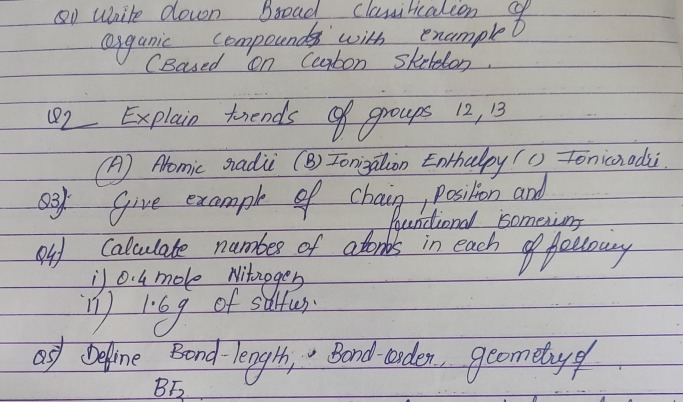 Q1) Write down Broad classification of
organic compounds with example
(Based on Carbon Skeleton.
Q2 Explain trends of groups 12, 13
(A) Atomic radii (B) Ionization Enthalpy (C) Ionic radii.
Q3) Give example of chain, position and
functional isomerism
Q4) Calculate number of atoms in each of following
i) 0.4 mole Nitrogen
ii) 1.6g of sulfur.
Q5) Define Bond-length, Bond-order, geometry of
BF3